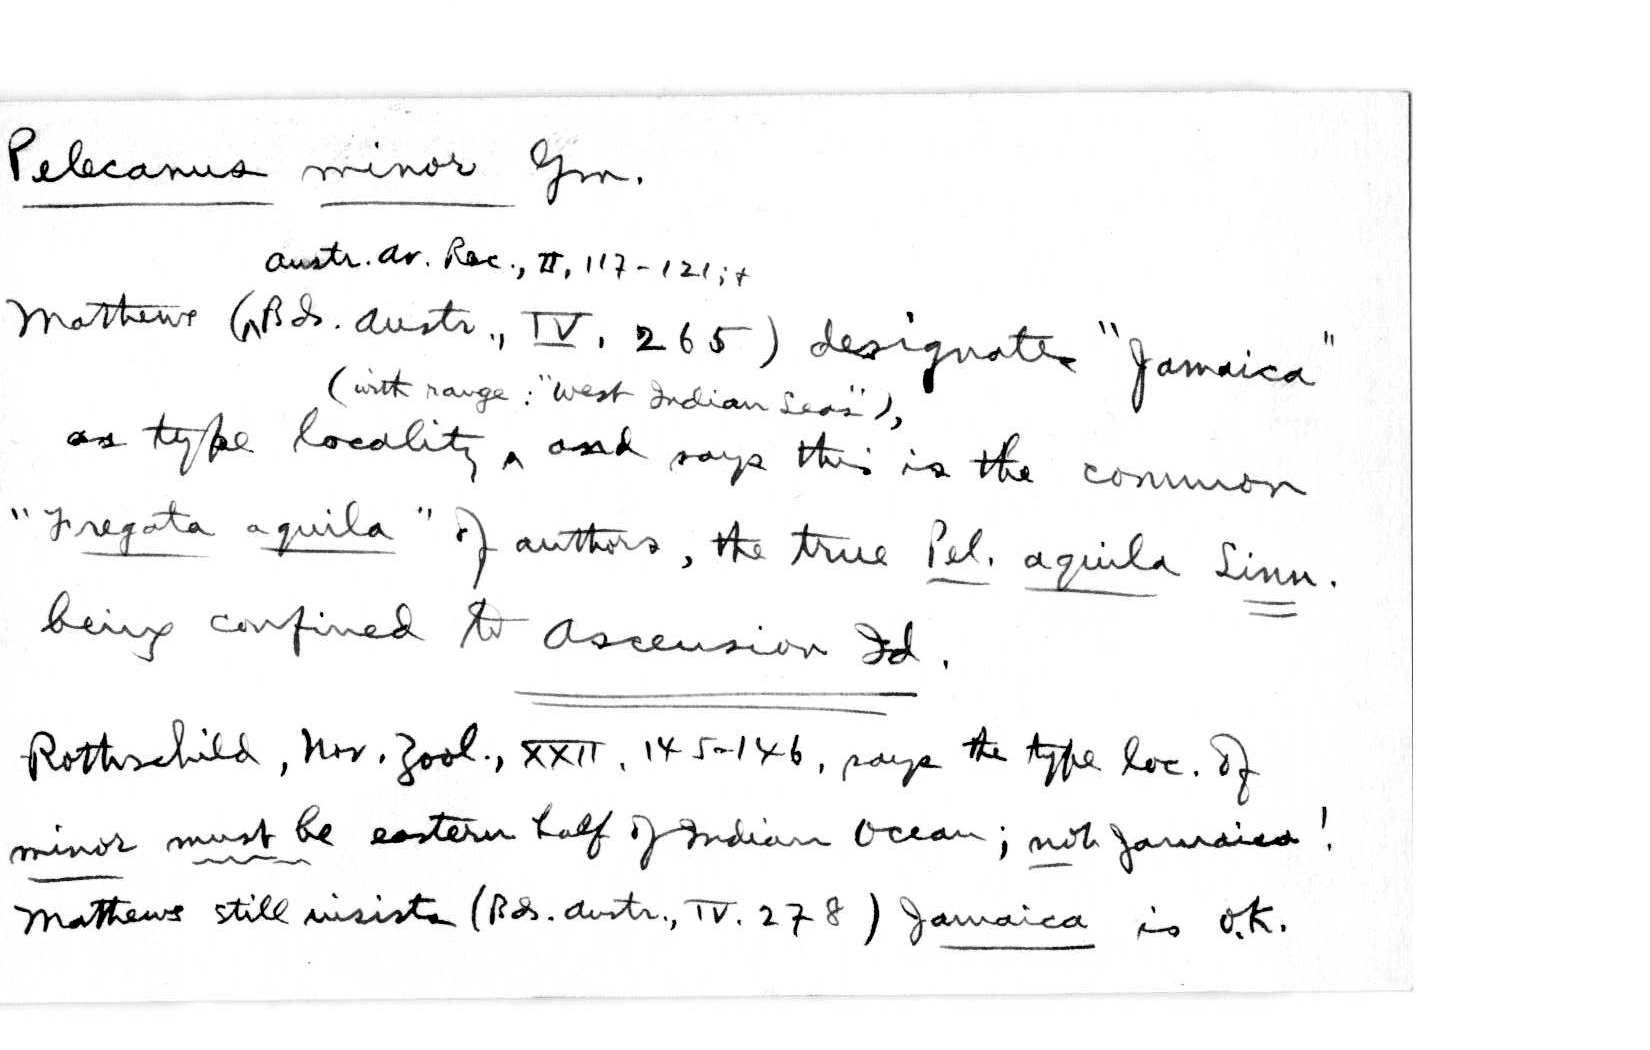 Pelecanus minor Gm.
Austr. Av. Rec., II, 117-121; +
Mathews (^Bds. Austr., IV, 265) designates "Jamaica"
(with range: "West Indian Seas"),
as type locality,^ and says this is the common
"Fregata aquila" of authors, the true Pel. aquila Linn.
being confined to Ascension Id.
Rothschild, Nov. Zool., XXII, 145-146, says the type loc. of
minor must be eastern half of Indian Ocean; not Jamaica!
Mathews still insists (Bds. Austr., IV. 278) Jamaica is O.K.